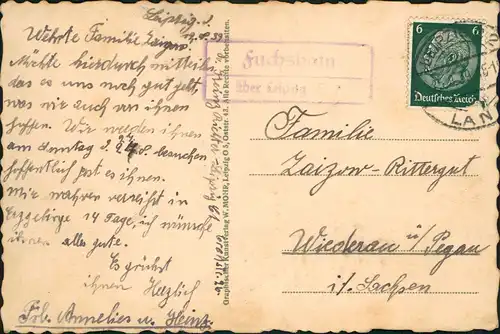 Leipzig d.
19.8.39
Werhrte Familie Zaizow.
Möchte hierdurch mitteilen
das es uns noch gut geht,
was wir auch von ihnen
hoffen. Wir werden ihnen
am Sonntag d. 27.8. besuchen
hoffentlich pat es ihnen.
Wir wahren verreißt in
Erzgebirge 14 Tage, ich wünsche
ihnen alles gute.
Es grüßt
ihnen Herzlich
Frl. Annelies u. Heinz.
Graphischer Kunstverlag W. MOHR, Leipzig O 5, Oststr. 43. Alle Rechte vorbehalten.
Fuchshain
über Leipzig
6 6
Deutsches Reich
LAN
Familie
Zaizow-Rittergut
Wiederau i/Pegau
i/. Sachsen